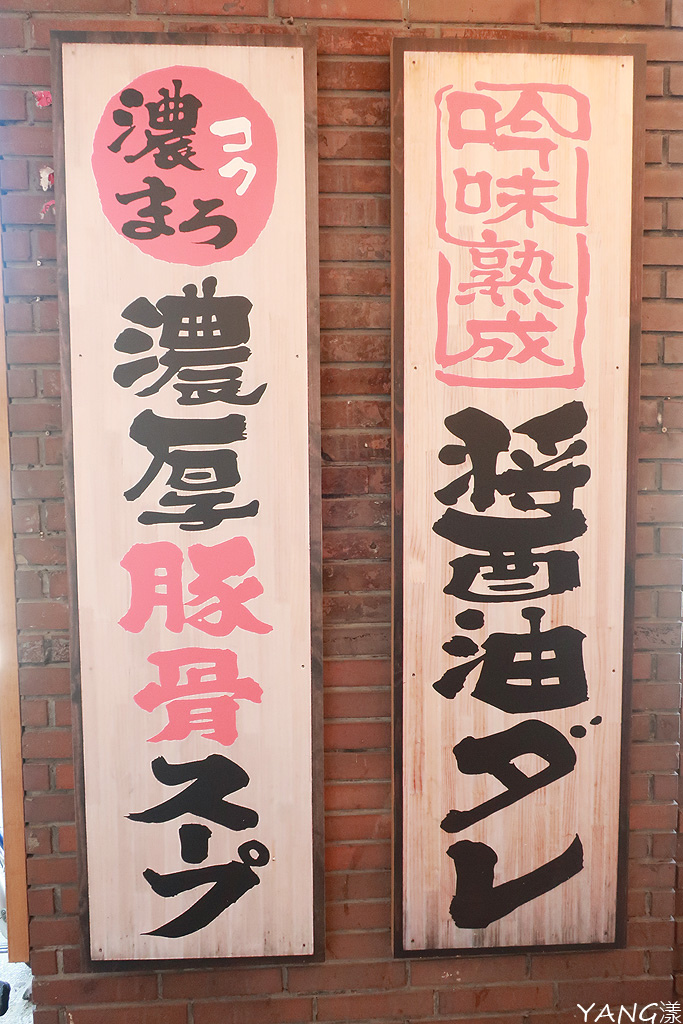 濃コク
まろ
濃厚豚骨スープ
吟味熟成
醤油ダレ
YANG漾